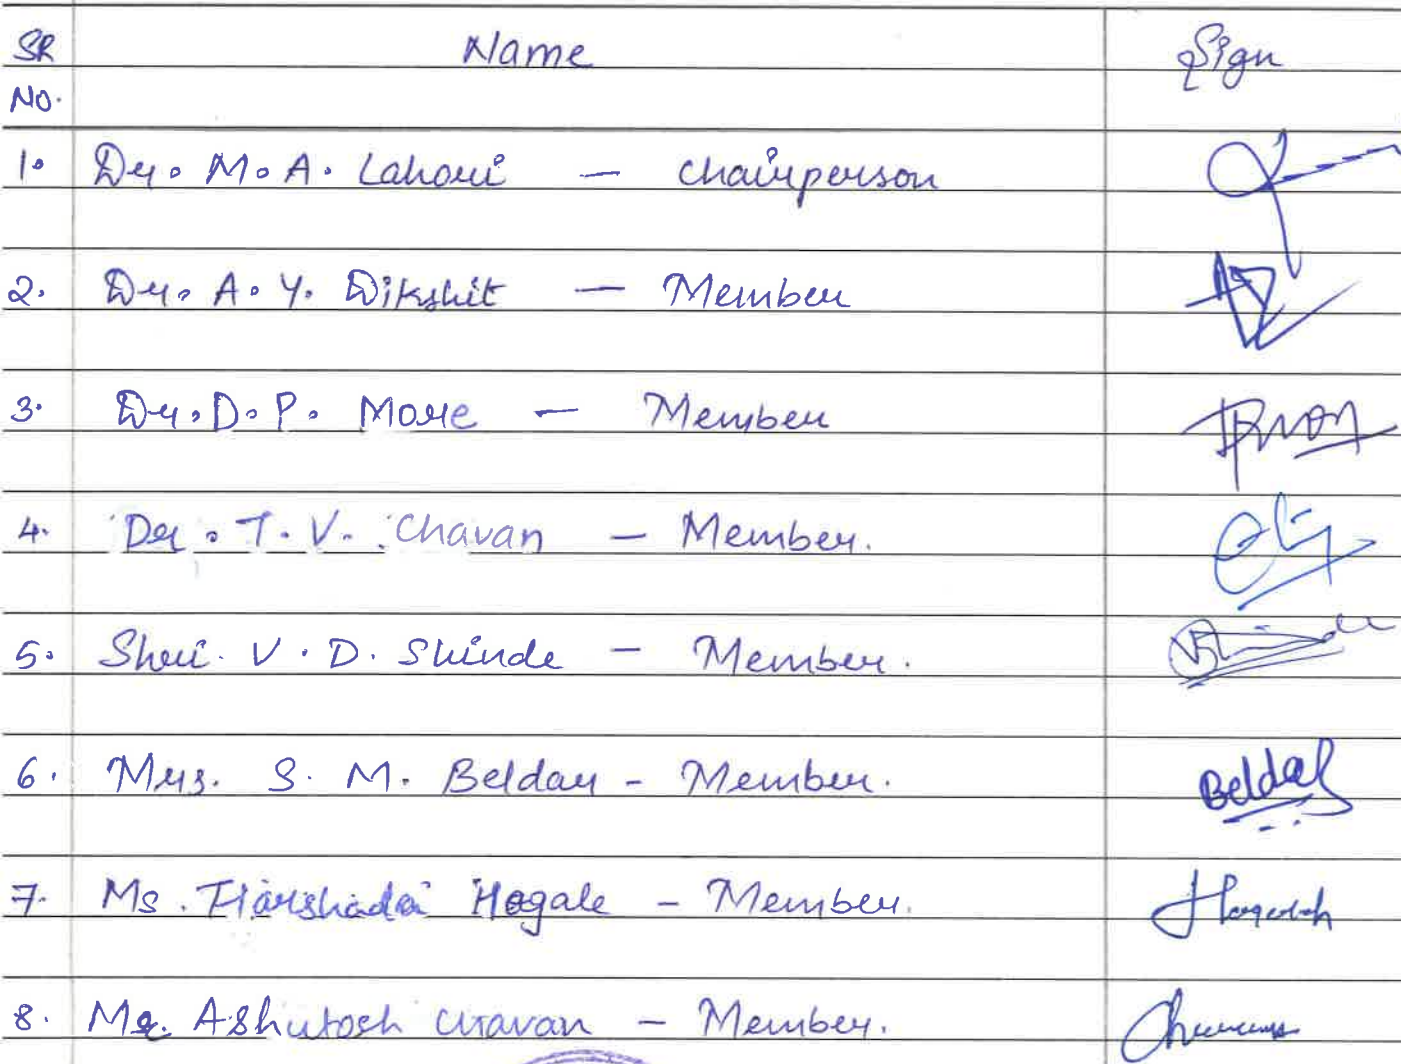 SR Name Sign
No.
1. Dr. M. A. Lahori — Chairperson
2. Dr. A. Y. Dikshit — Member
3. Dr. D. P. More — Member
4. Dr. T. V. Chavan — Member.
5. Shri. V. D. Shinde — Member.
6. Mrs. S. M. Beldar - Member. Beldar
7. Ms. Harshada Hogale - Member.
8. Mr. Ashutosh Chavan - Member.